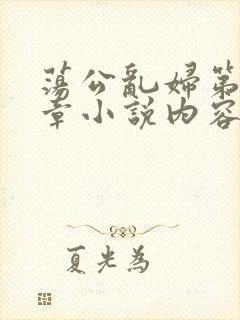 蕩公亂婦第
章小説内容
夏光為